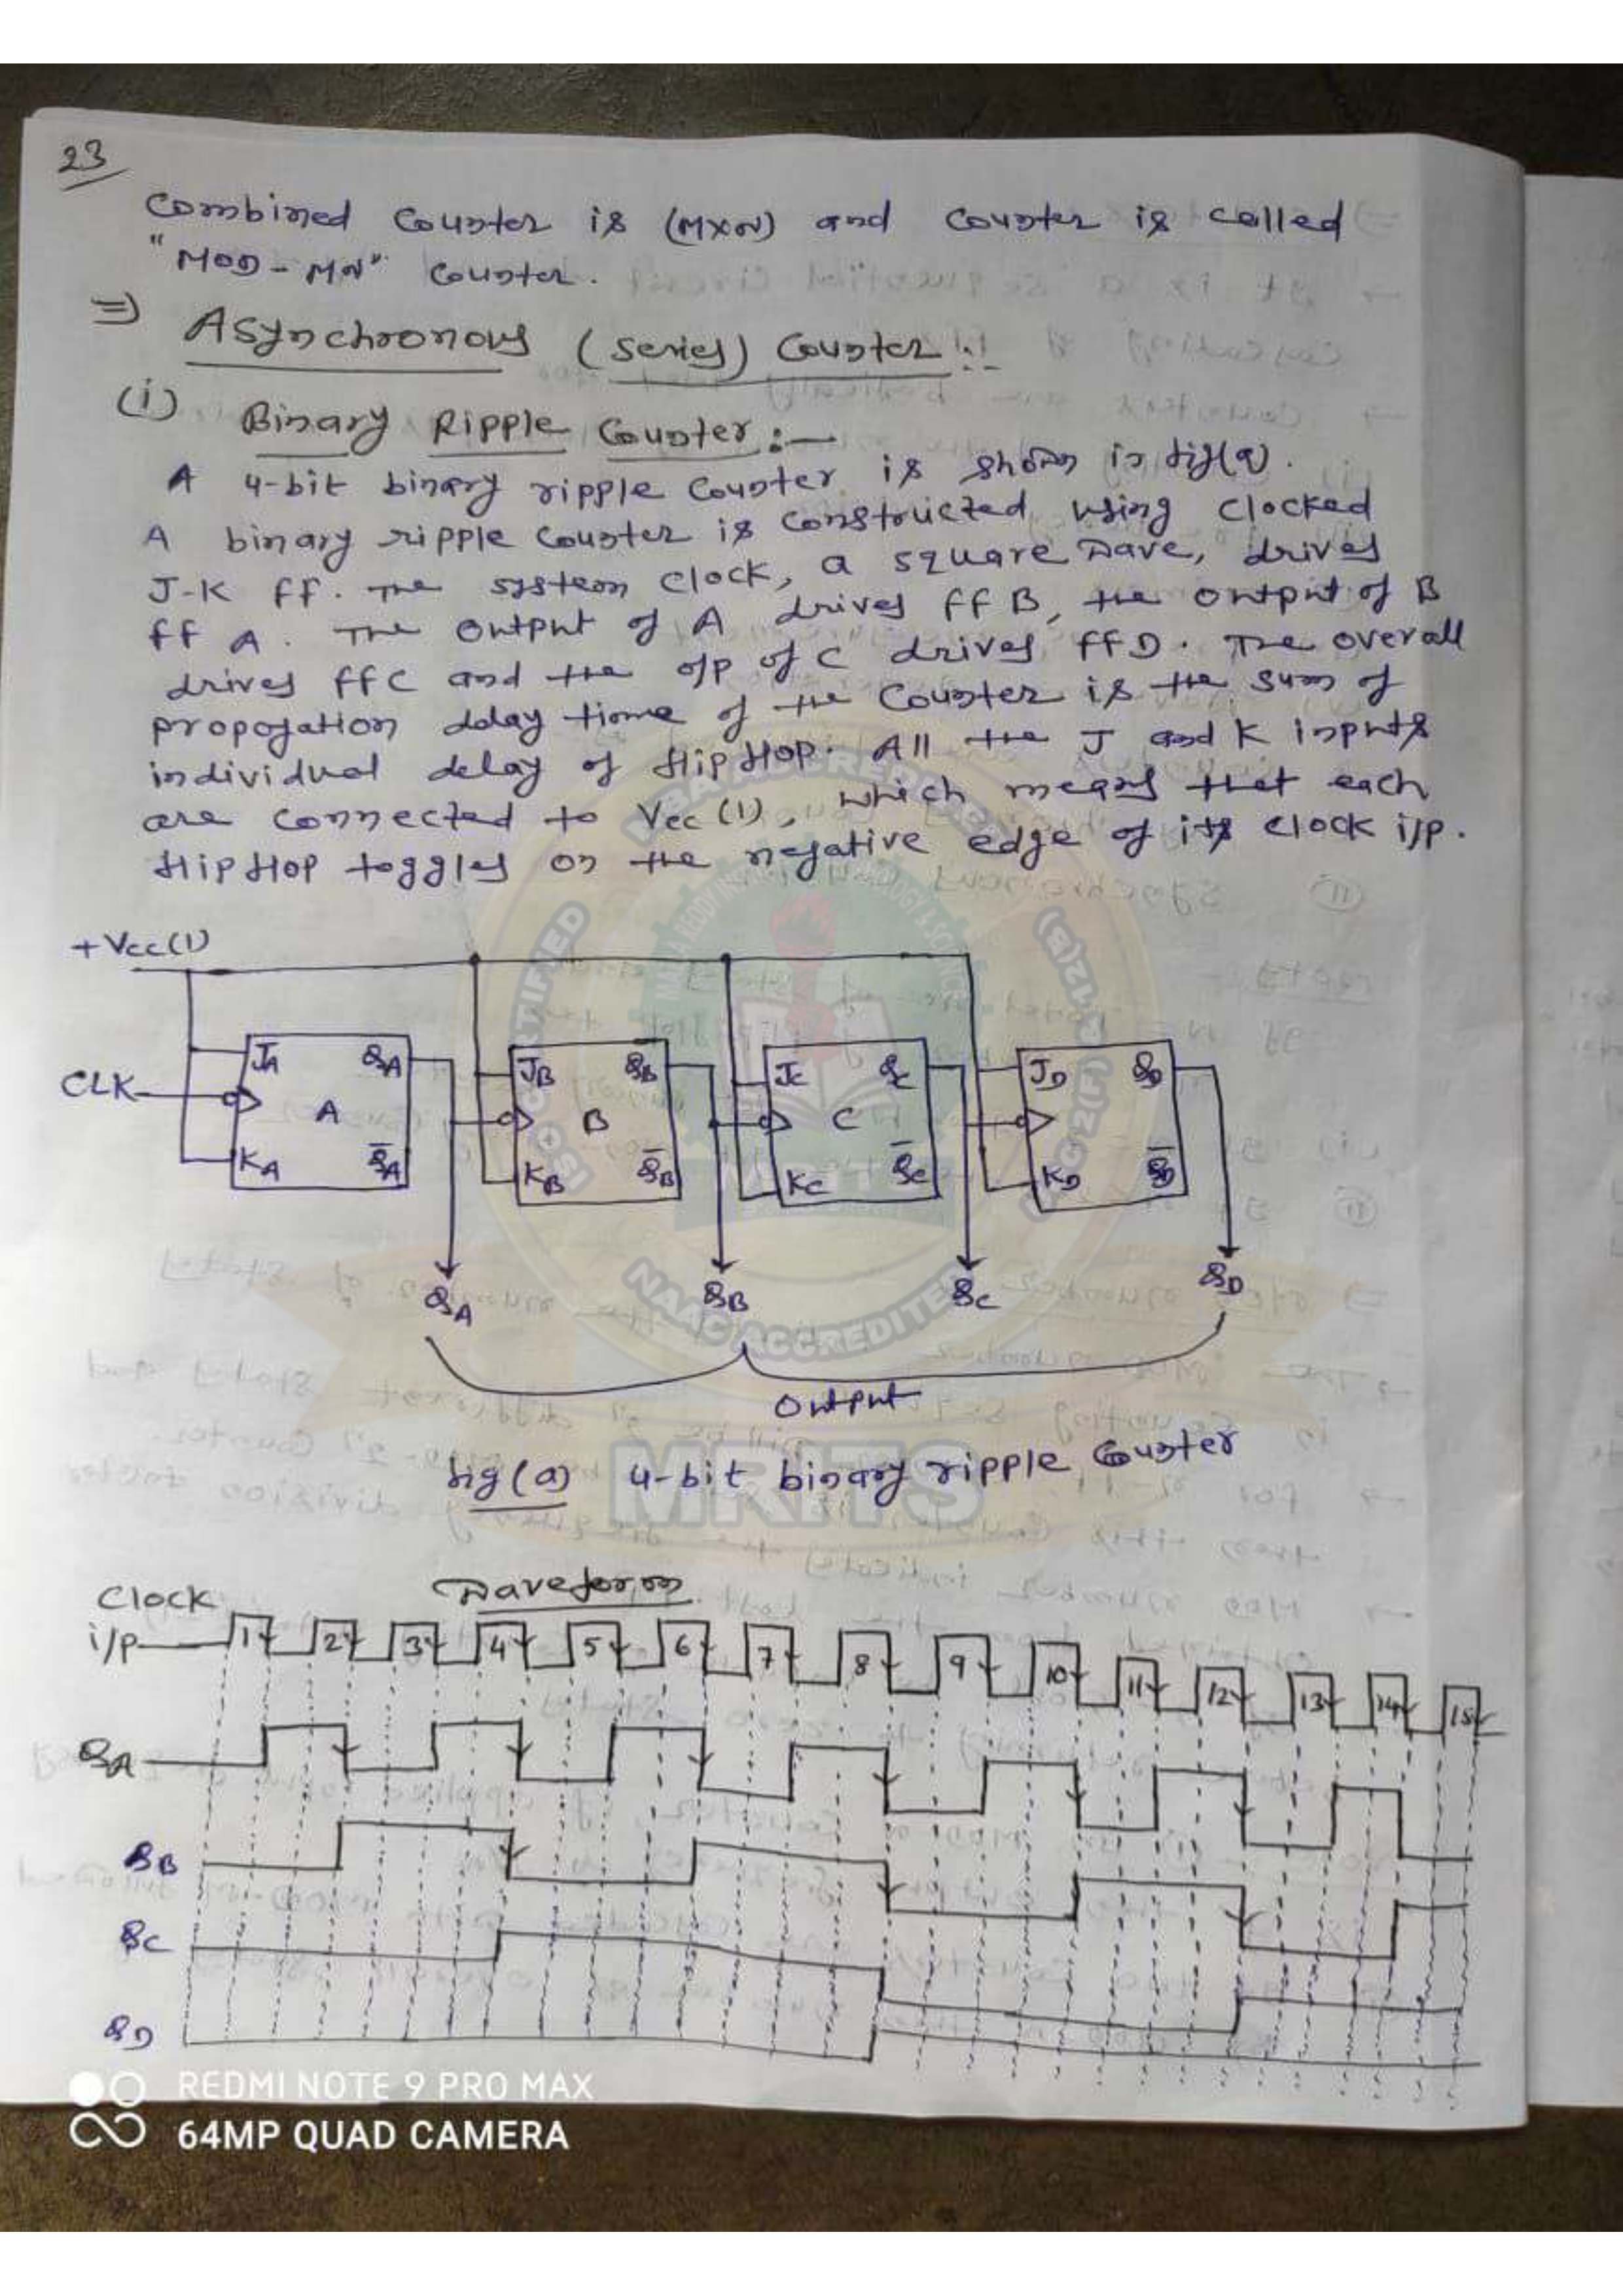 23
Combined Counter is (MXN) and Counter is called
"MOD-MN" Counter.
=) Asynchronous (series) Counter :-
(i) Binary Ripple Counter :-
A 4-bit binary ripple Counter is shown in fig(a).
A binary ripple Counter is constructed using clocked
J-K FF. The system clock, a square wave, drives
FF A. The output of A drives FF B, the output of B
drives FFC and the o/p of C drives FFD. The overall
propogation delay time of the Counter is the sum of
individual delay of flipflop. All the J and K inputs
are connected to Vcc (1), which means that each
flipflop toggles on the negative edge of its clock i/p.
+Vcc(1)
JA QA JB QB JC QC JD QD
CLK A B C
KA Q̅A KB Q̅B KC Q̅C KD Q̅D
QA QB QC QD
Output
fig(a) 4-bit binary ripple Counter
Waveform
Clock
i/p 1 2 3 4 5 6 7 8 9 10 11 12 13 14 15
QA
QB
QC
QD
NAAC ACCREDITED
MRITS
REDMI NOTE 9 PRO MAX
64MP QUAD CAMERA